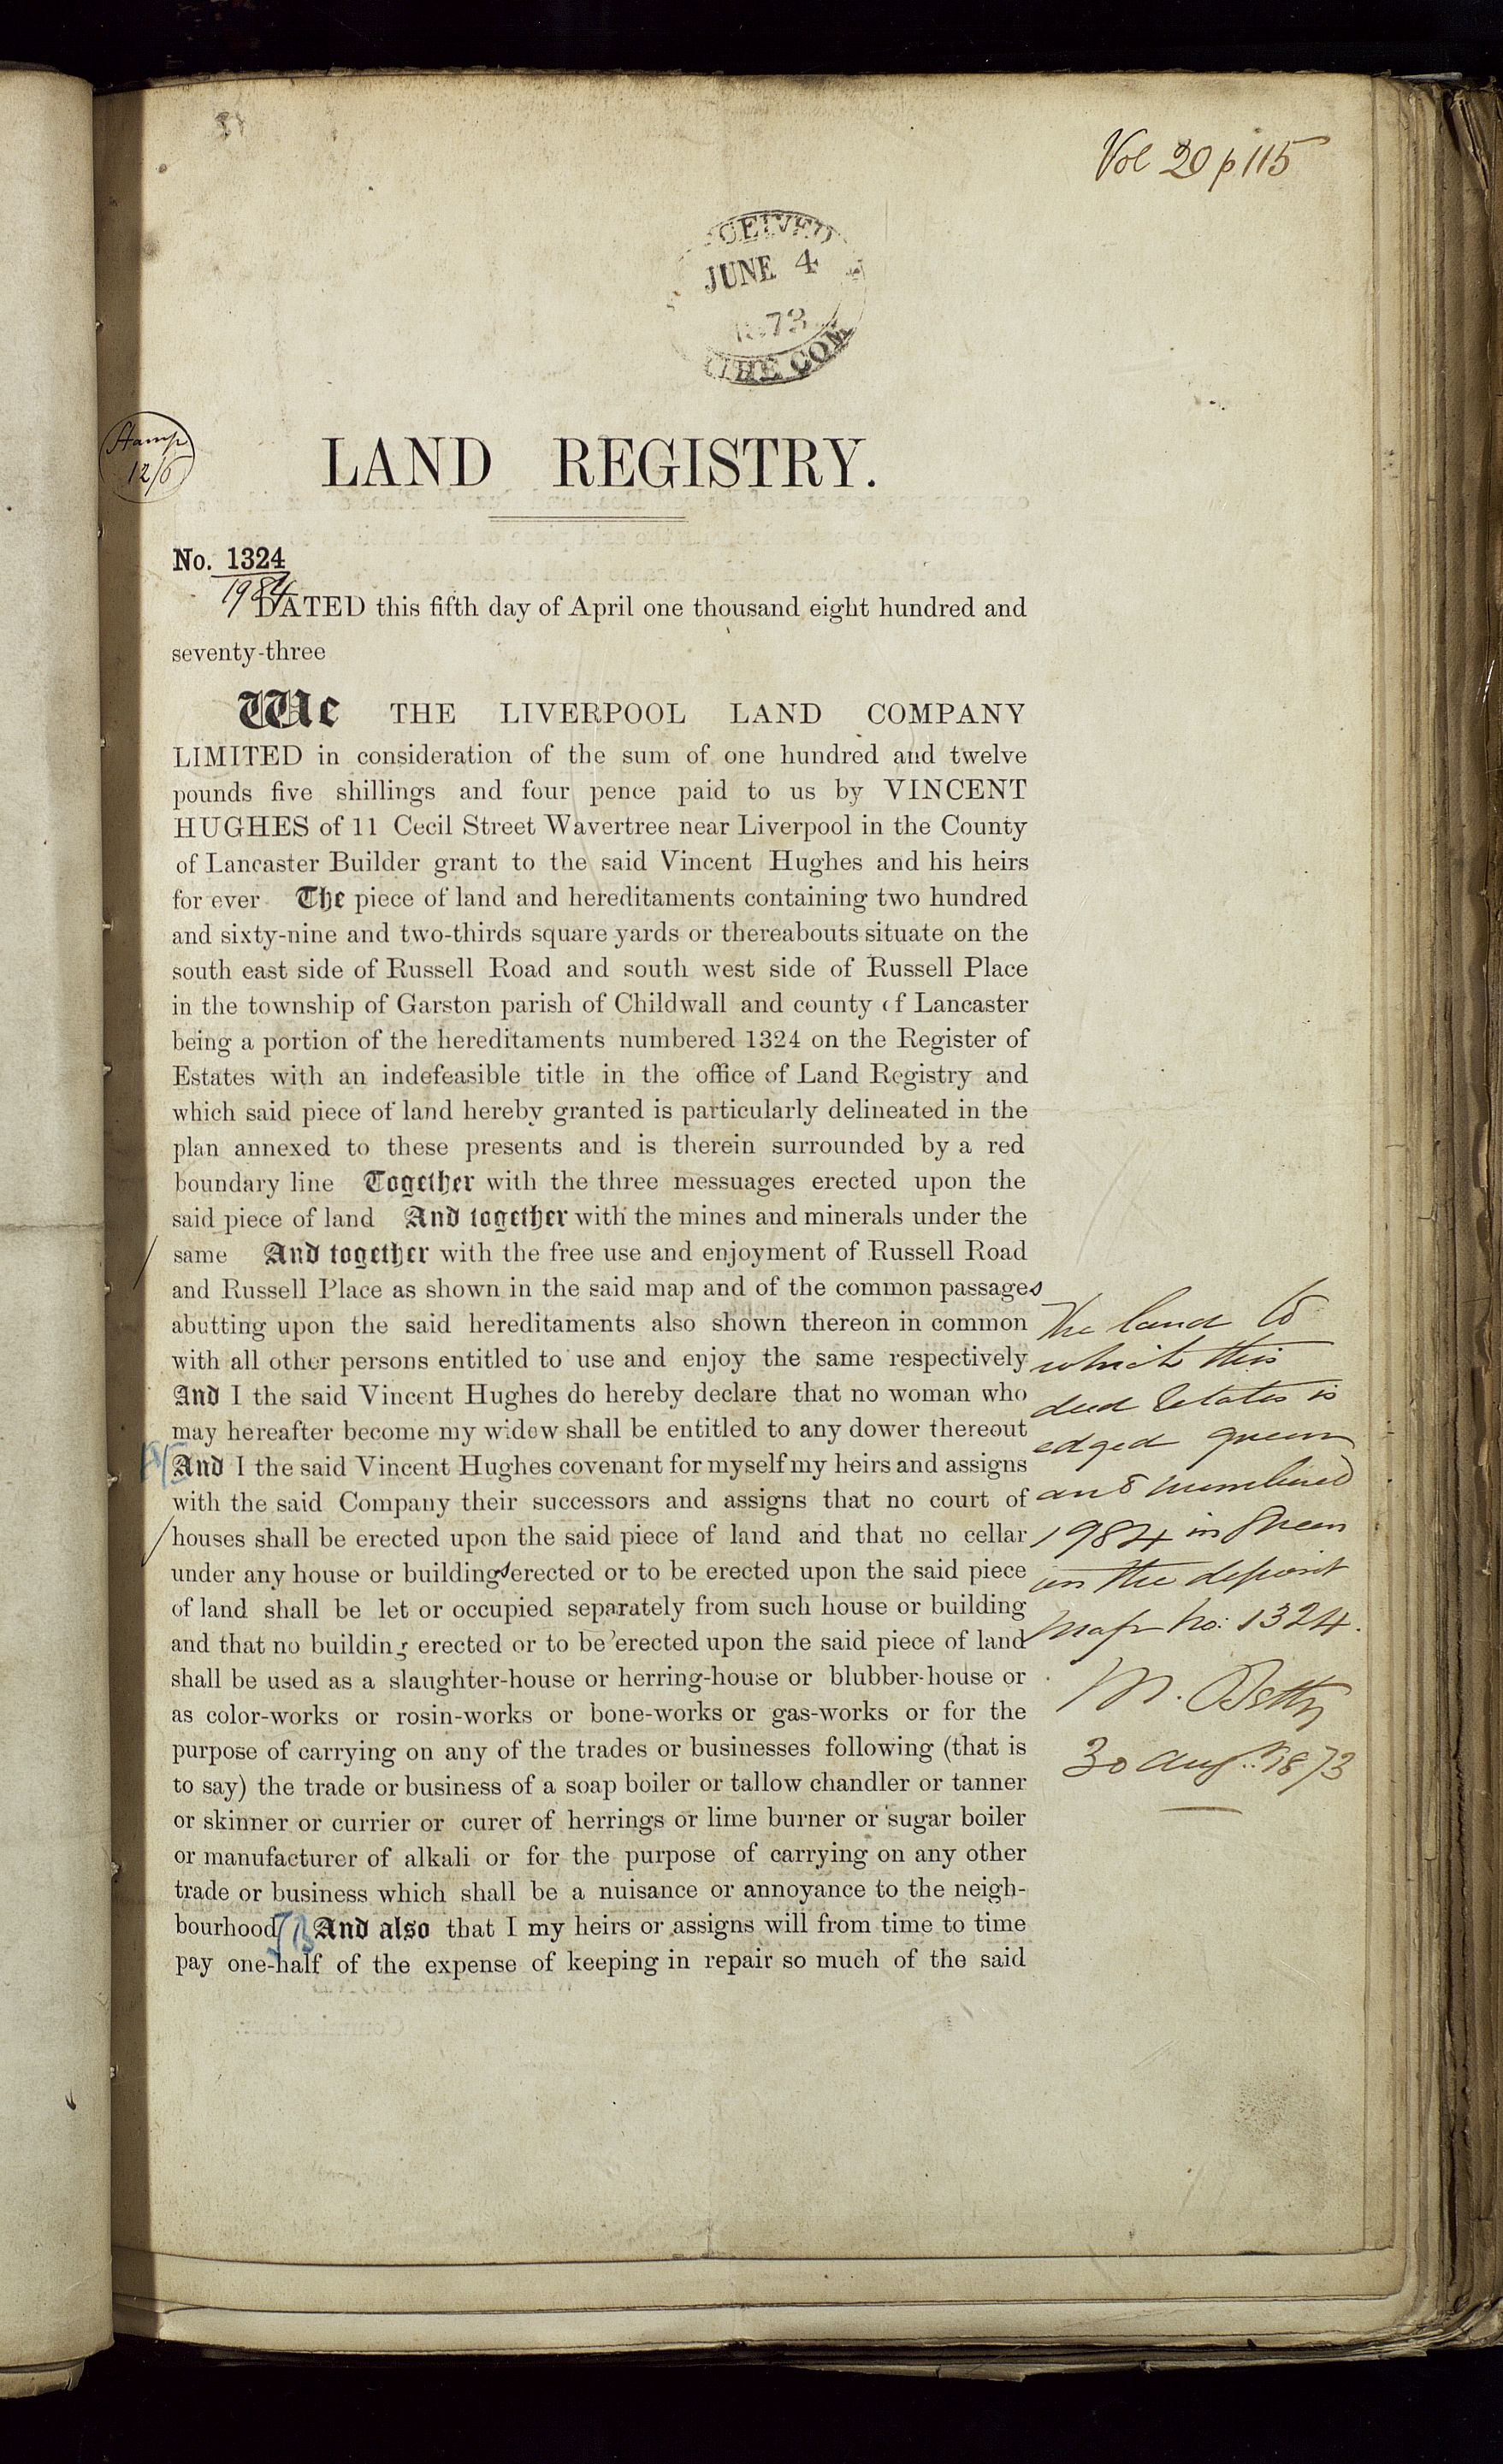 Vol 20 p 115
CEIVED
JUNE 4
1873
THE COM
Stamp
12/6
LAND REGISTRY.
No. 1324
1984
DATED this fifth day of April one thousand eight hundred and
seventy-three
We THE LIVERPOOL LAND COMPANY
LIMITED in consideration of the sum of one hundred and twelve
pounds five shillings and four pence paid to us by VINCENT
HUGHES of 11 Cecil Street Wavertree near Liverpool in the County
of Lancaster Builder grant to the said Vincent Hughes and his heirs
for ever The piece of land and hereditaments containing two hundred
and sixty-nine and two-thirds square yards or thereabouts situate on the
south east side of Russell Road and south west side of Russell Place
in the township of Garston parish of Childwall and county of Lancaster
being a portion of the hereditaments numbered 1324 on the Register of
Estates with an indefeasible title in the office of Land Registry and
which said piece of land hereby granted is particularly delineated in the
plan annexed to these presents and is therein surrounded by a red
boundary line Together with the three messuages erected upon the
said piece of land And together with the mines and minerals under the
same And together with the free use and enjoyment of Russell Road
and Russell Place as shown in the said map and of the common passages
abutting upon the said hereditaments also shown thereon in common
with all other persons entitled to use and enjoy the same respectively
And I the said Vincent Hughes do hereby declare that no woman who
may hereafter become my widow shall be entitled to any dower thereout
And I the said Vincent Hughes covenant for myself my heirs and assigns
with the said Company their successors and assigns that no court of
houses shall be erected upon the said piece of land and that no cellar
under any house or buildings erected or to be erected upon the said piece
of land shall be let or occupied separately from such house or building
and that no building erected or to be erected upon the said piece of land
shall be used as a slaughter-house or herring-house or blubber-house or
as color-works or rosin-works or bone-works or gas-works or for the
purpose of carrying on any of the trades or businesses following (that is
to say) the trade or business of a soap boiler or tallow chandler or tanner
or skinner or currier or curer of herrings or lime burner or sugar boiler
or manufacturer of alkali or for the purpose of carrying on any other
trade or business which shall be a nuisance or annoyance to the neigh-
bourhood And also that I my heirs or assigns will from time to time
pay one-half of the expense of keeping in repair so much of the said
The land to
which this
deed relates is
edged green
and numbered
1984 in green
on the deposit
map No: 1324.
M. Betty
30 Aug. 1873